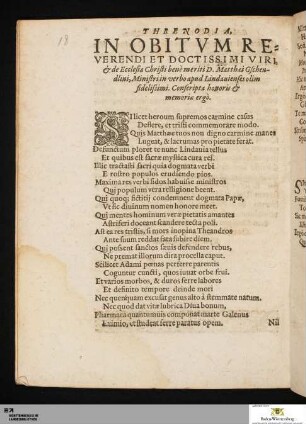 18
THRENODIA,
IN OBITVM RE-
VERENDI ET DOCTISSIMI VIRI,
& de Ecclesia Christi bene meriti D. Matthæi Gschen-
dlini, Ministri in verbo apud Lindauienses olim
fidelissimi. Conscripta honoris &
memoriæ ergò.
SIlicet heroum supremos carmine casus
Deflere, et tristi commemorare modo.
Quis Matthæe tuos non digno carmine manes
Lugeat, & lacrumas pro pietate ferat.
Defunctum ploret te nunc Lindauia tellus
Et quibus est sacræ mystica cura rei.
Ille tractasti sacri quia dogmata verbi
E rostro populos erudiendo pios.
Maxima res verbi fidos habuisse ministros
Qui populum vera relligione beent.
Qui quoq; fictitij condemnent dogmata Papæ,
Vt sic diuinum nomen honore meet.
Qui mentes hominum veræ pietatis amantes
Astriferi doceant scandere tecta poli.
Ast ea res tristis, si mors inopina Theandros
Ante suum reddat fata subire diem.
Qui possent sanctos scitè defendere rebus,
Ne premat illorum dira procella caput.
Scilicet Adami pœnas perferre parentis
Coguntur cuncti, quos iuuat orbe frui.
Et varios morbos, & duros ferre labores
Et definito tempore deinde mori
Nec quenquam excusat genus alto á stemmate natum,
Nec quod dat vitæ lubrica Diua bonum,
Pharmaca quantumuis componat marte Galenus
Eximio, vt studeat ferre paratus opem.
Nil
WÜRTTEMBERGISCHE
LANDESBIBLIOTHEK
Baden-Württemberg